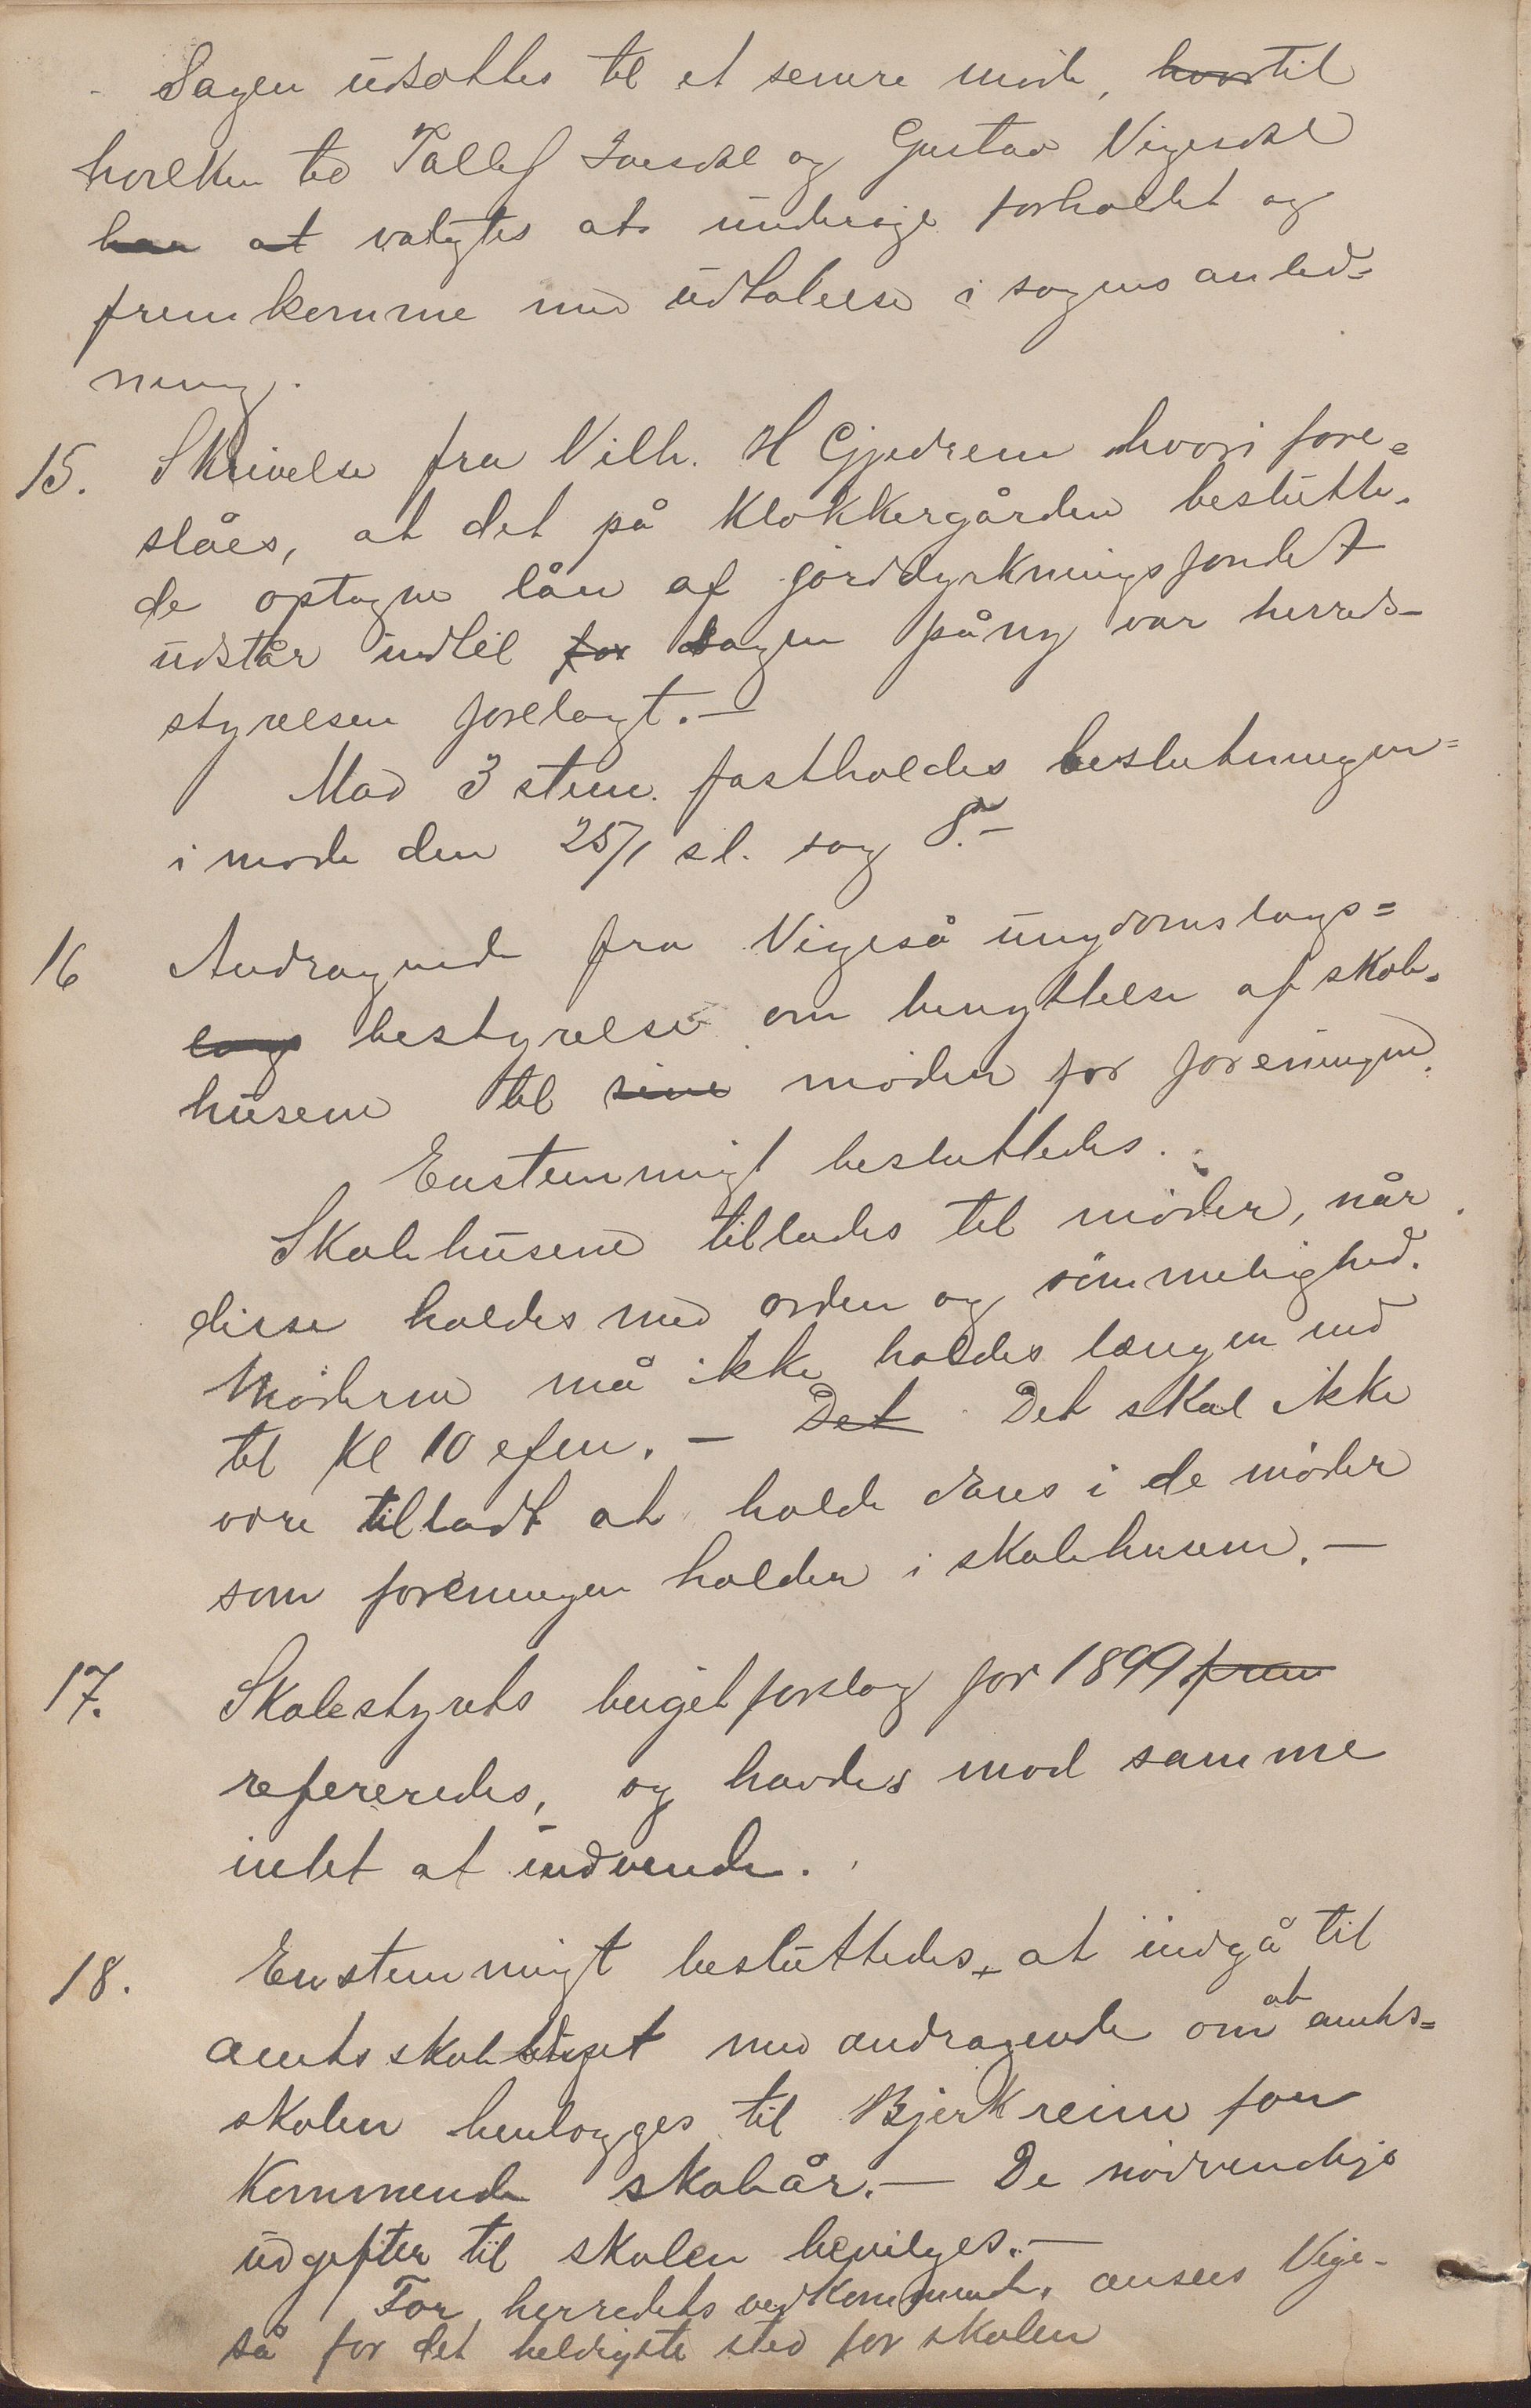 Sagen udsættes til et senere møde, hvortil
hvilken tid Tallef Ivesdal og Gustav Vigesdal
har at valgtes at undersøge forholdet og
fremkomme med udtalelse i sagens anled=
ning.
15. Skrivelse fra Vilh. H Gjedrem hvori fore=
slåes, at det på Klokkergården beslutte=
de optagne lån af jorddyrkningsfondet
udstår indtil for sagen påny var herreds=
styrelsen forelagt. —
Mod 3 stem. fastholdes beslutningen
i møde den 25/1 sl. sag 8. —
16 Andragende fra Vigeså ungdomslags=
lags bestyrelse om benyttelse af skole=
husene til sine møder for foreningen.
Enstemmigt besluttedes.
Skolehusene tillades til møder, når
disse holdes med orden og sømmelighed.
Møderne må ikke holdes længer end
til Kl 10 efm. — Det Det skal ikke
være tilladt at holde dans i de møder
som foreningen holder i skolehusene. —
17. Skolestyrets bugetforslag for 1899 frem
refereredes, og havdes mod samme
intet at indvende.
18. Enstemmigt besluttedes, at indgå til
amtsskolestyret med andragende om at amts=
skolen henlægges til Bjerkreim for
Kommende skoleår. — De nødvendige
udgifter til skolen bevilges. —
For herredets vedkommende, ansees Vige=
så for det heldigste sted for skolen